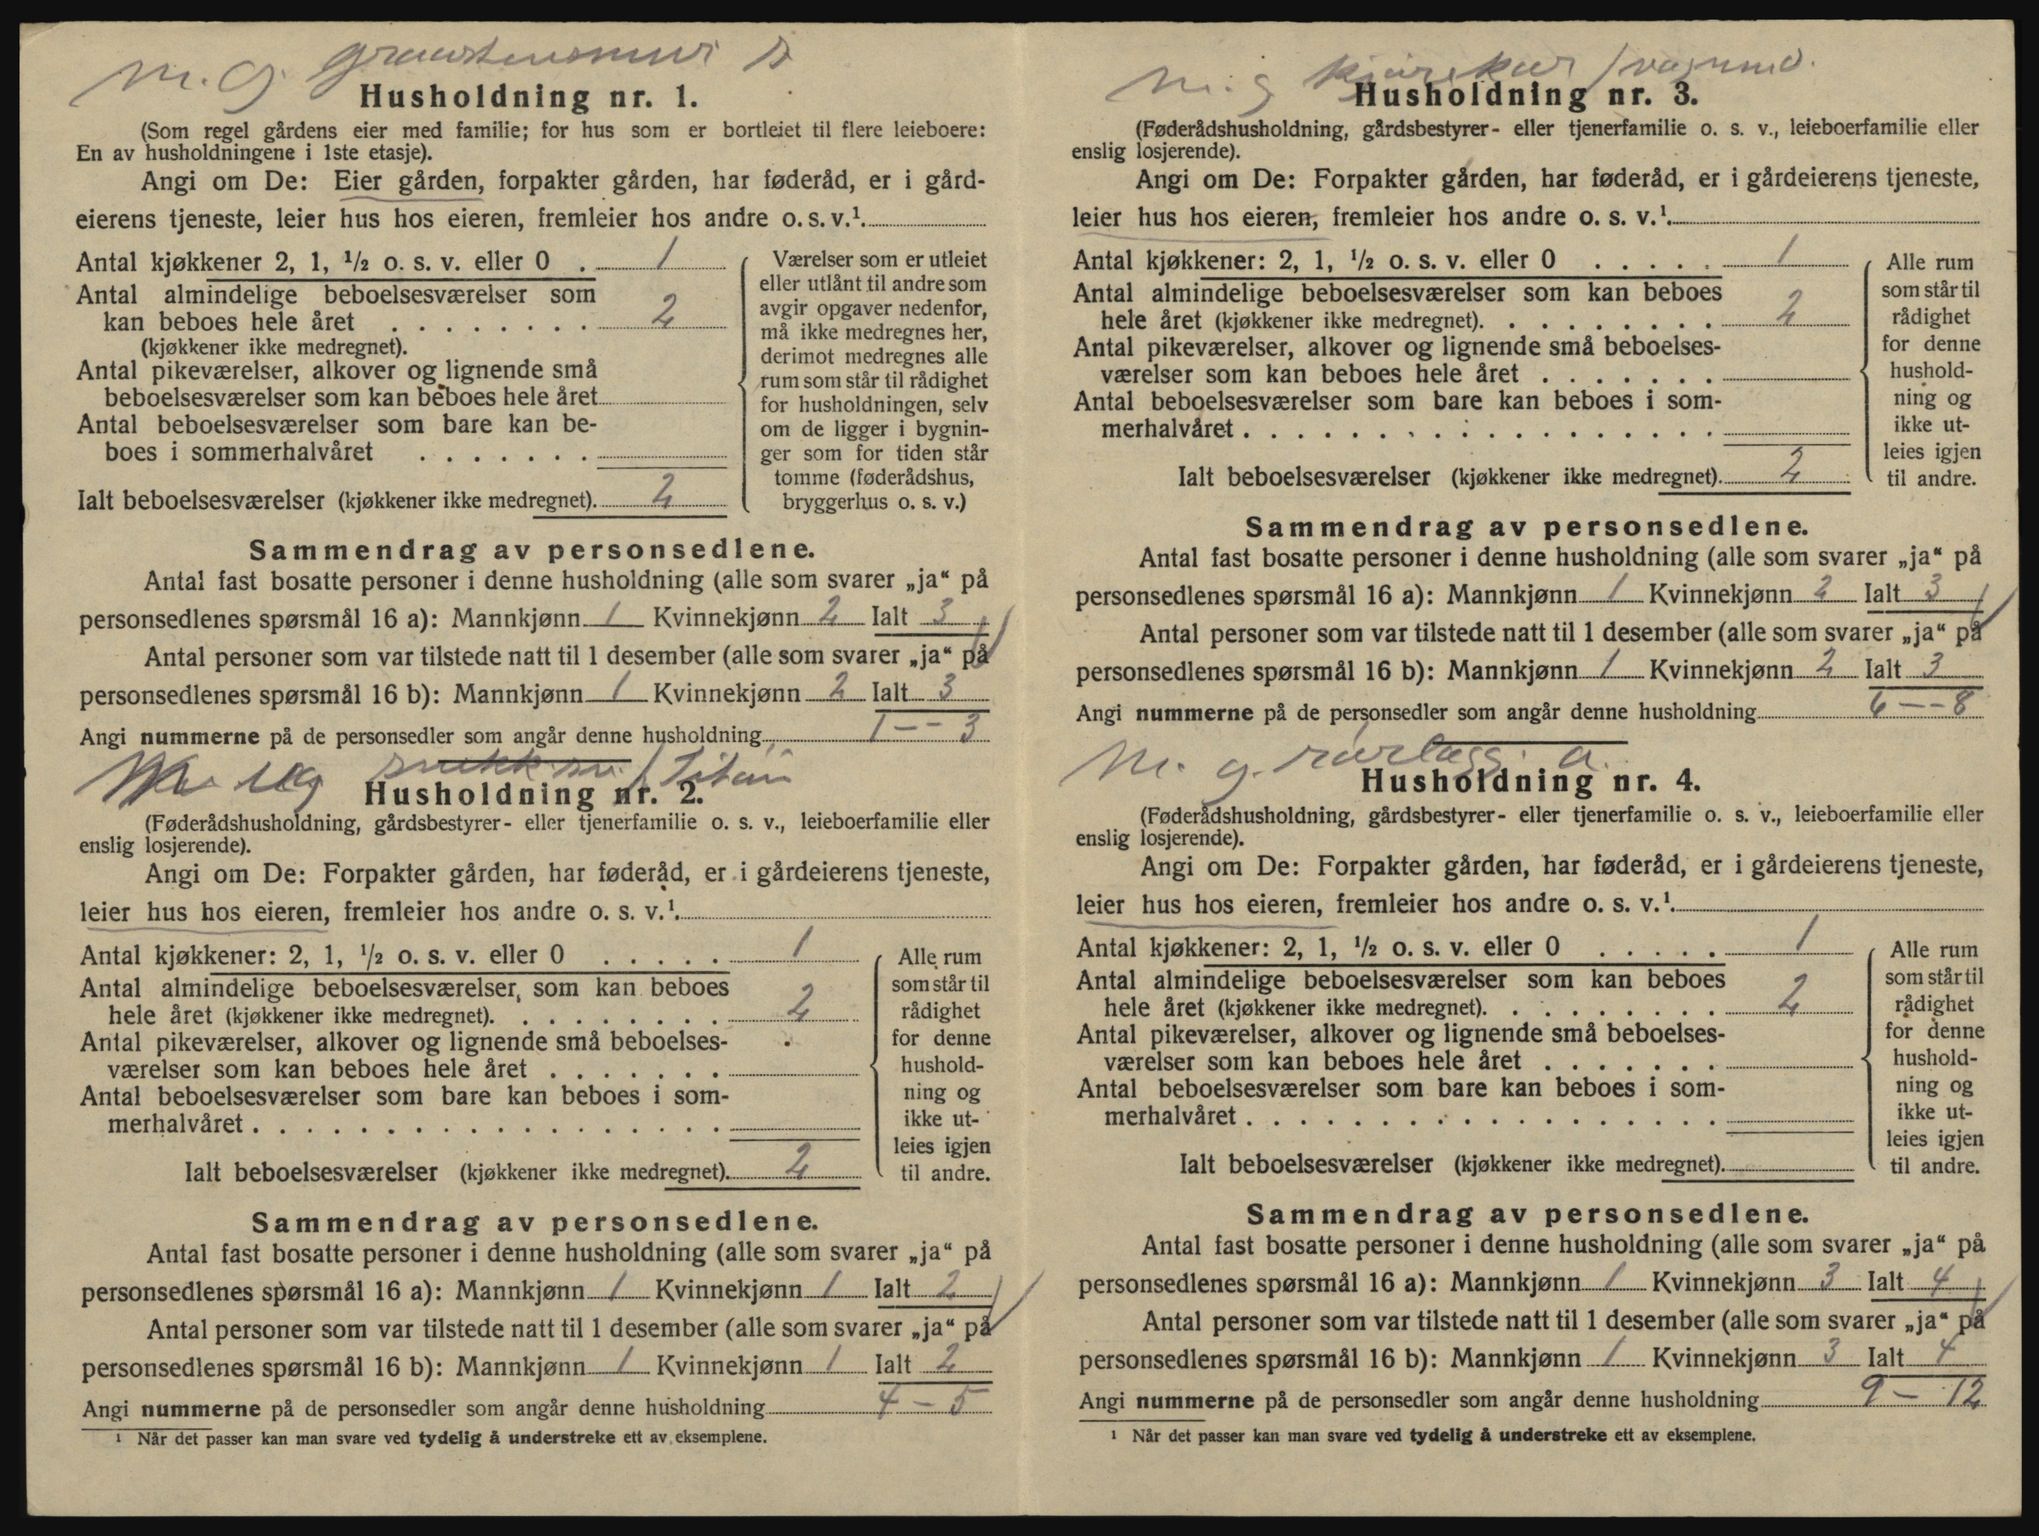 m. g.
Husholdning nr. 1.
(Som regel gårdens eier med familie; for hus som er bortleiet til flere leieboere:
En av husholdningene i 1ste etasje).
Angi om De: Eier gården, forpakter gården, har føderåd, er i gård-
eierens tjeneste, leier hus hos eieren, fremleier hos andre o. s. v.¹.
Antal kjøkkener 2, 1, ½ o. s. v. eller 0 . 1
Antal almindelige beboelsesværelser som
kan beboes hele året . . . . . . . . 2
(kjøkkener ikke medregnet).
Antal pikeværelser, alkover og lignende små
beboelsesværelser som kan beboes hele året
Antal beboelsesværelser som bare kan be-
boes i sommerhalvåret . . . . . . .
Ialt beboelsesværelser (kjøkkener ikke medregnet). 2
Værelser som er utleiet
eller utlånt til andre som
avgir opgaver nedenfor,
må ikke medregnes her,
derimot medregnes alle
rum som står til rådighet
for husholdningen, selv
om de ligger i bygnin-
ger som for tiden står
tomme (føderådshus,
bryggerhus o. s. v.)
Sammendrag av personsedlene.
Antal fast bosatte personer i denne husholdning (alle som svarer „ja“ på
personsedlenes spørsmål 16 a): Mannkjønn 1 Kvinnekjønn 2 Ialt 3
Antal personer som var tilstede natt til 1 desember (alle som svarer „ja“ på
personsedlenes spørsmål 16 b): Mannkjønn 1 Kvinnekjønn 2 Ialt 3
Angi nummerne på de personsedler som angår denne husholdning 1 – – 3
Husholdning nr. 2.
(Føderådshusholdning, gårdsbestyrer- eller tjenerfamilie o. s. v., leieboerfamilie eller
enslig losjerende).
Angi om De: Forpakter gården, har føderåd, er i gårdeierens tjeneste,
leier hus hos eieren, fremleier hos andre o. s. v.¹.
Antal kjøkkener: 2, 1, ½ o. s. v. eller 0 . . . . . 1
Antal almindelige beboelsesværelser, som kan beboes
hele året (kjøkkener ikke medregnet). . . . . . . . . 2
Antal pikeværelser, alkover og lignende små beboelses-
værelser som kan beboes hele året . . . . . . .
Antal beboelsesværelser som bare kan beboes i som-
merhalvåret . . . . . . . . . . . . . . . . . .
Ialt beboelsesværelser (kjøkkener ikke medregnet). 2
Alle rum
som står til
rådighet
for denne
hushold-
ning og
ikke ut-
leies igjen
til andre.
Sammendrag av personsedlene.
Antal fast bosatte personer i denne husholdning (alle som svarer „ja“ på
personsedlenes spørsmål 16 a): Mannkjønn 1 Kvinnekjønn 1 Ialt 2
Antal personer som var tilstede natt til 1 desember (alle som svarer „ja“ på
personsedlenes spørsmål 16 b): Mannkjønn 1 Kvinnekjønn 1 Ialt 2
Angi nummerne på de personsedler som angår denne husholdning 4 – 5
¹ Når det passer kan man svare ved tydelig å understreke ett av eksemplene.
m. g.
Husholdning nr. 3.
(Føderådshusholdning, gårdsbestyrer- eller tjenerfamilie o. s. v., leieboerfamilie eller
enslig losjerende).
Angi om De: Forpakter gården, har føderåd, er i gårdeierens tjeneste,
leier hus hos eieren, fremleier hos andre o. s. v.¹.
Antal kjøkkener: 2, 1, ½ o. s. v. eller 0 . . . . . 1
Antal almindelige beboelsesværelser som kan beboes
hele året (kjøkkener ikke medregnet). . . . . . . . . 2
Antal pikeværelser, alkover og lignende små beboelses-
værelser som kan beboes hele året . . . . . . .
Antal beboelsesværelser som bare kan beboes i som-
merhalvåret . . . . . . . . . . . . . . . . . .
Ialt beboelsesværelser (kjøkkener ikke medregnet). 2
Alle rum
som står til
rådighet
for denne
hushold-
ning og
ikke ut-
leies igjen
til andre.
Sammendrag av personsedlene.
Antal fast bosatte personer i denne husholdning (alle som svarer „ja“ på
personsedlenes spørsmål 16 a): Mannkjønn 1 Kvinnekjønn 2 Ialt 3
Antal personer som var tilstede natt til 1 desember (alle som svarer „ja“ på
personsedlenes spørsmål 16 b): Mannkjønn 1 Kvinnekjønn 2 Ialt 3
Angi nummerne på de personsedler som angår denne husholdning 6 – – 8
m. g. rørlegg. a.
Husholdning nr. 4.
(Føderådshusholdning, gårdsbestyrer- eller tjenerfamilie o. s. v., leieboerfamilie eller
enslig losjerende).
Angi om De: Forpakter gården, har føderåd, er i gårdeierens tjeneste,
leier hus hos eieren, fremleier hos andre o. s. v.¹.
Antal kjøkkener: 2, 1, ½ o. s. v. eller 0 . . . . . 1
Antal almindelige beboelsesværelser som kan beboes
hele året (kjøkkener ikke medregnet). . . . . . . . . 2
Antal pikeværelser, alkover og lignende små beboelses-
værelser som kan beboes hele året . . . . . . .
Antal beboelsesværelser som bare kan beboes i som-
merhalvåret . . . . . . . . . . . . . . . . . .
Ialt beboelsesværelser (kjøkkener ikke medregnet).
Alle rum
som står til
rådighet
for denne
hushold-
ning og
ikke ut-
leies igjen
til andre.
Sammendrag av personsedlene.
Antal fast bosatte personer i denne husholdning (alle som svarer „ja“ på
personsedlenes spørsmål 16 a): Mannkjønn 1 Kvinnekjønn 3 Ialt 4
Antal personer som var tilstede natt til 1 desember (alle som svarer „ja“ på
personsedlenes spørsmål 16 b): Mannkjønn 1 Kvinnekjønn 3 Ialt 4
Angi nummerne på de personsedler som angår denne husholdning 9 – 12
¹ Når det passer kan man svare ved tydelig å understreke ett av eksemplene.